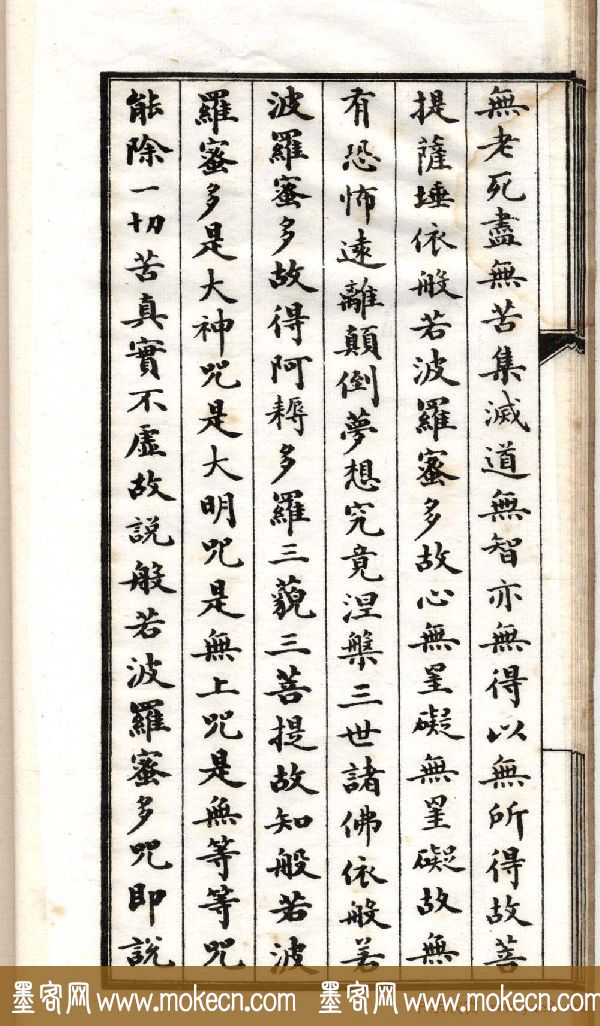 無老死盡無苦集滅道無智亦無得以無所得故菩
提薩埵依般若波羅蜜多故心無罣礙無罣礙故無
有恐怖遠離顛倒夢想究竟涅槃三世諸佛依般若
波羅蜜多故得阿耨多羅三藐三菩提故知般若波
羅蜜多是大神咒是大明咒是無上咒是無等等咒
能除一切苦真實不虛故説般若波羅蜜多咒即說
墨客网 www.mokecn.com 墨客网 www.mokecn.com